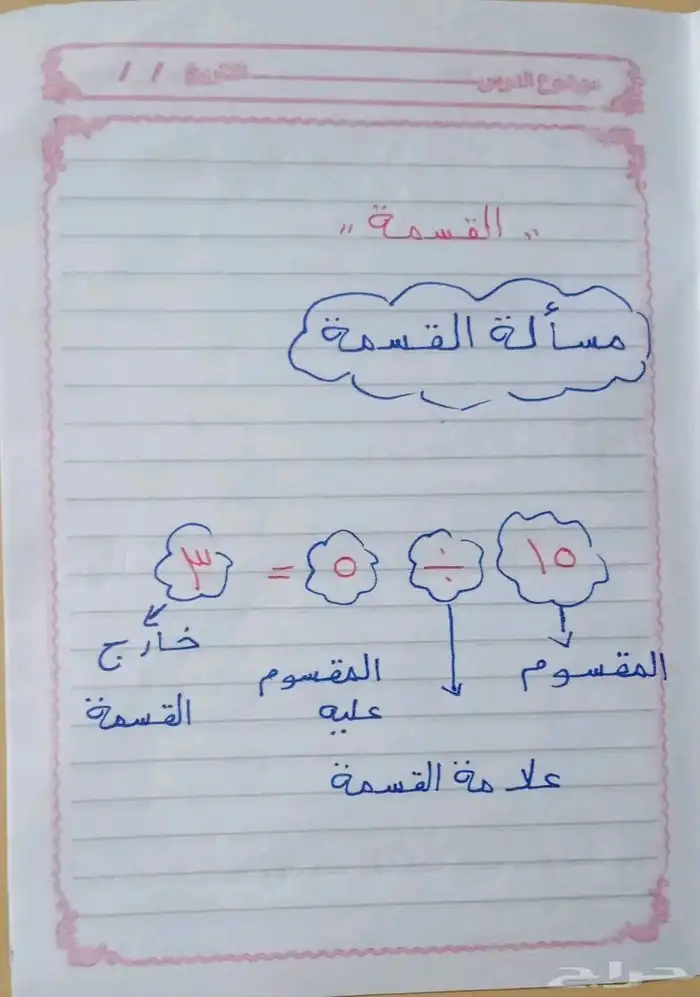 موضوع الدرس التاريخ / /
" القسمة "
مسألة القسمة
١٥ ÷ ٥ = ٣
المقسوم
المقسوم عليه
خارج القسمة
علامة القسمة
حراج